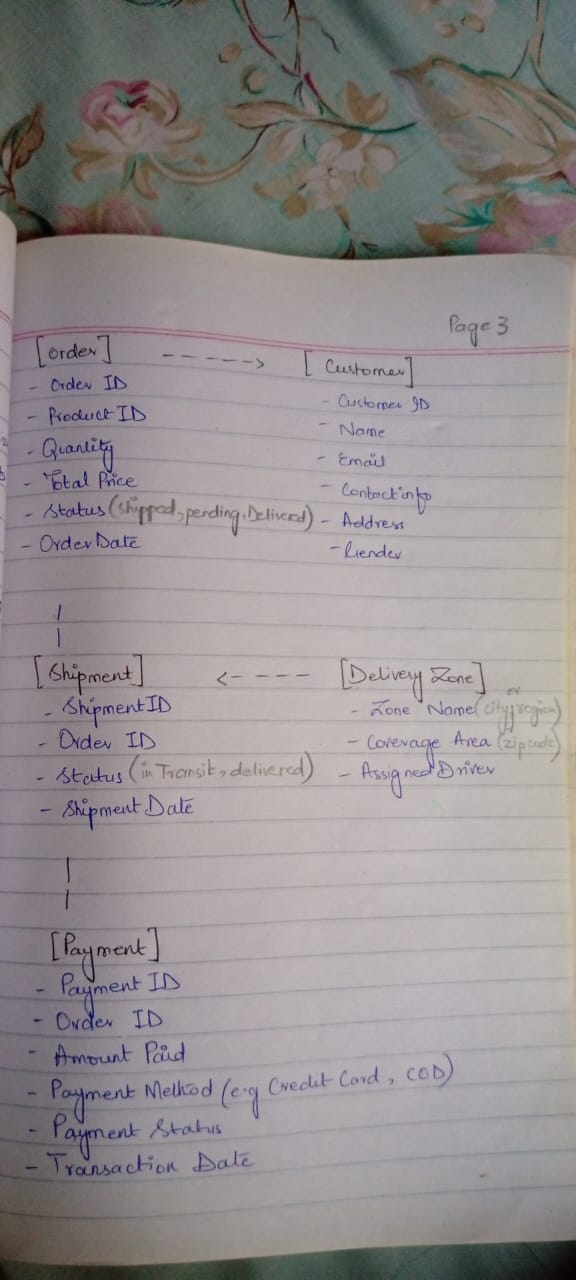 Page 3
[Order] -----> [Customer]
- Order ID
- Product ID
- Quantity
- Total Price
- Status (shipped, pending, Deliverd)
- Order Date
- Customer ID
- Name
- Email
- Contact info
- Address
- Gender
[Shipment] <---- [Delivery Zone]
- Shipment ID
- Order ID
- Status (in Transit, delivered)
- Shipment Date
- Zone Name (city or region)
- Coverage Area (zip code)
- Assigned Driver
[Payment]
- Payment ID
- Order ID
- Amount Paid
- Payment Method (e.g Credit Card, COD)
- Payment Status
- Transaction Date